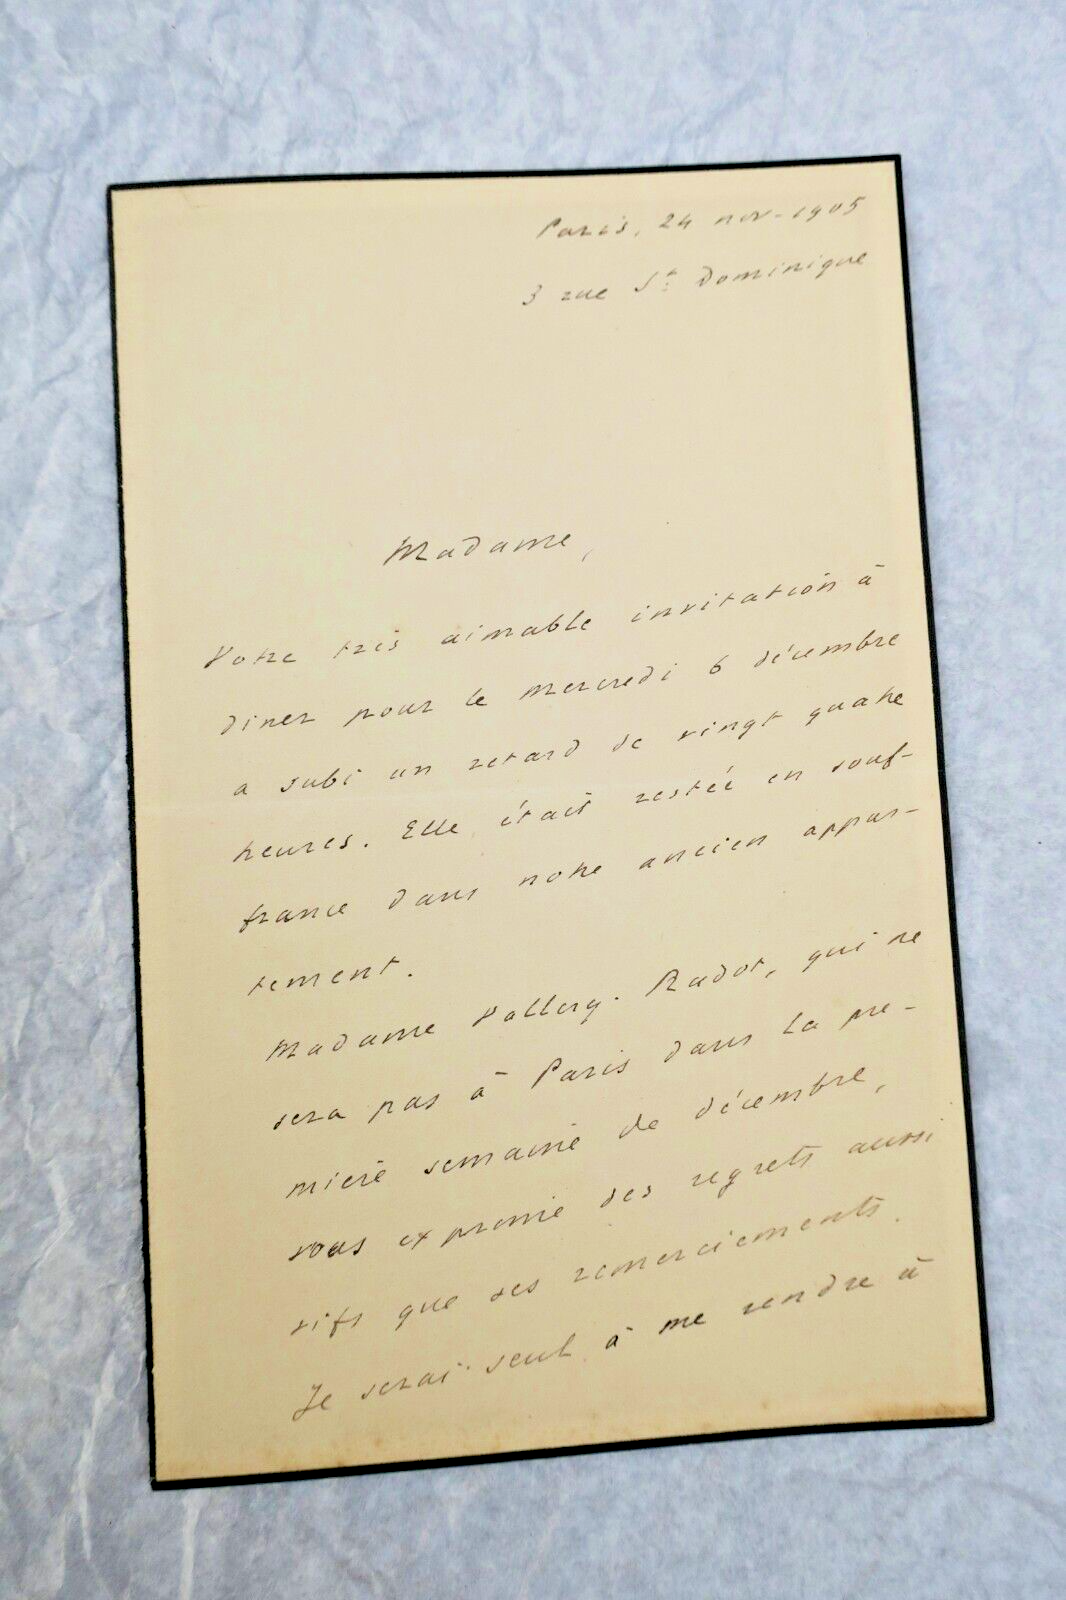 Paris, 24 nov - 1905
3 rue St Dominique
Madame,
Votre très aimable invitation à
diner pour le mercredi 6 décembre
a subi un retard de vingt quatre
heures. Elle était restée en souf-
france dans notre ancien appar-
tement.
Madame Vallery-Radot, qui ne
sera pas à Paris dans la pre-
mière semaine de décembre,
vous exprime ses regrets aussi
vifs que ses remerciements.
Je serai seul à me rendre à